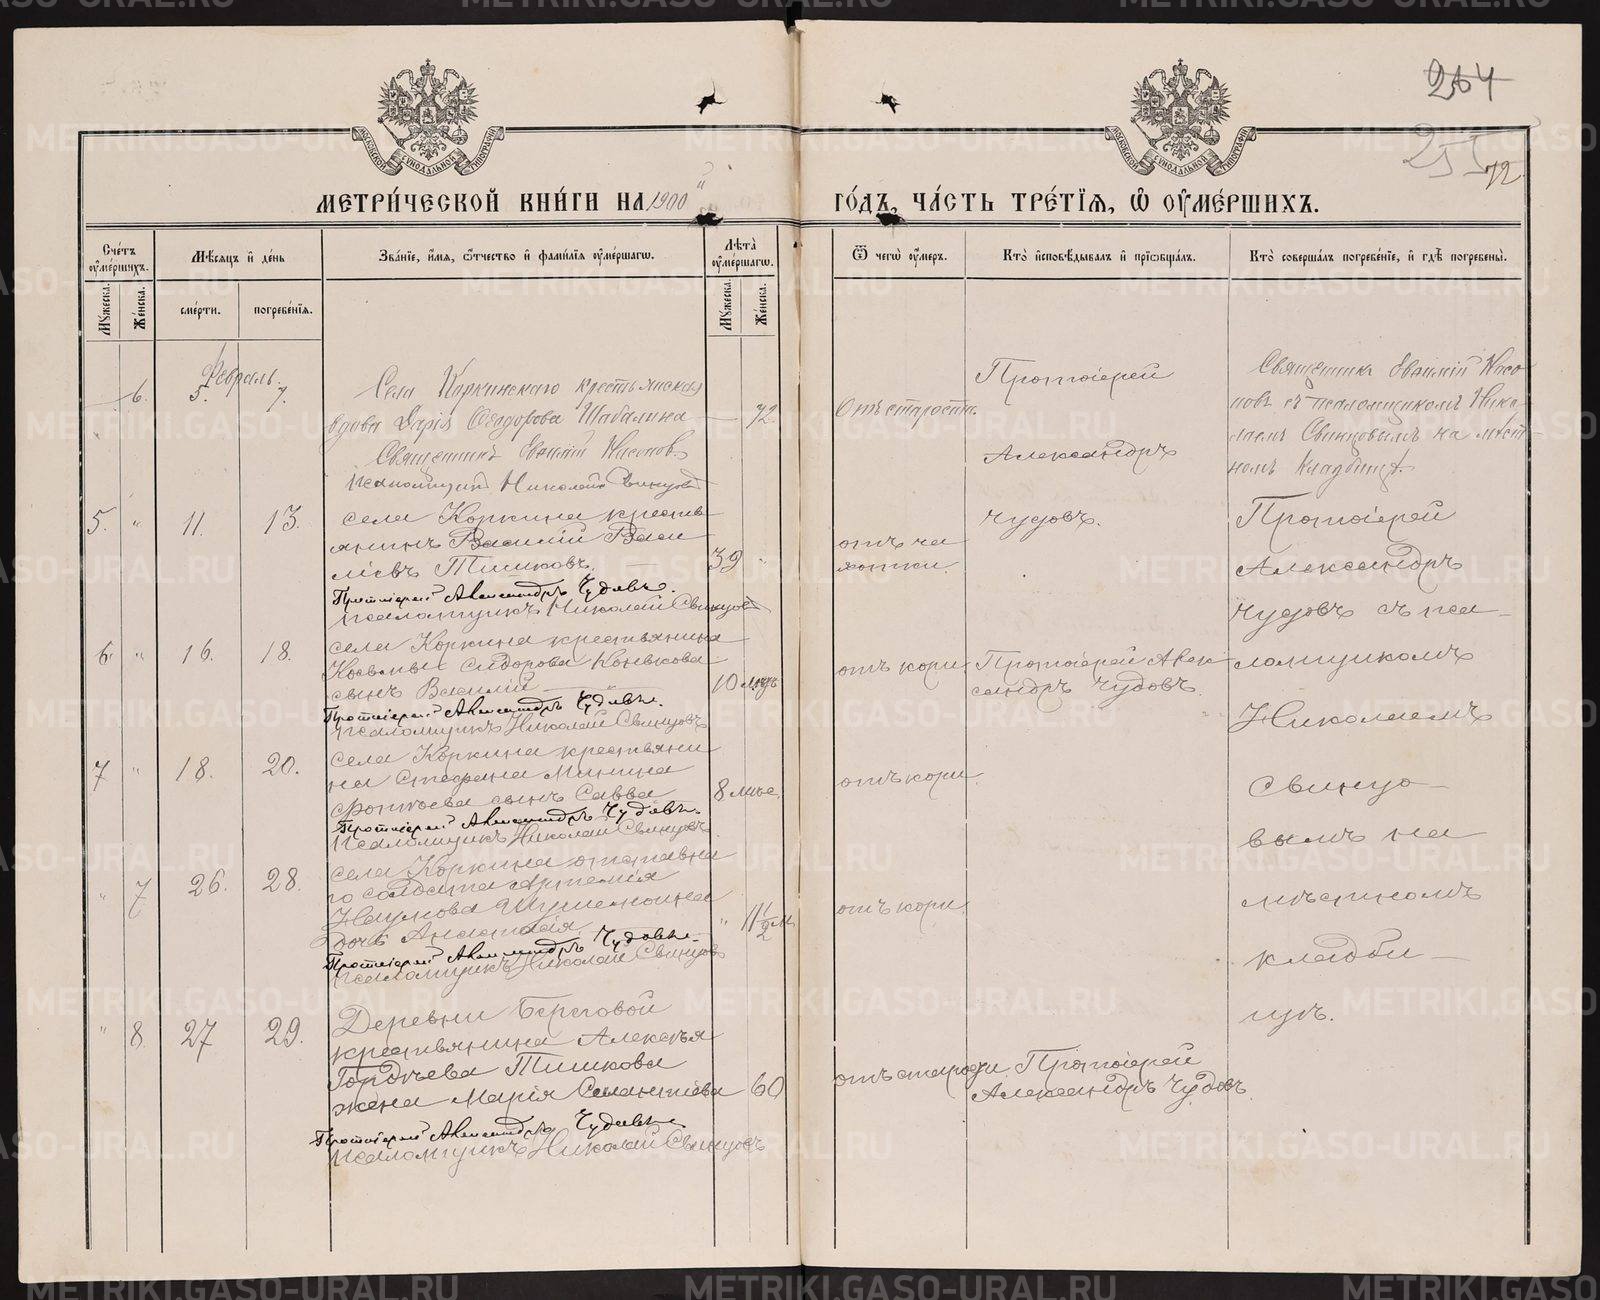 264
255
72
МОСКОВСКОЙ СѴНОДАЛЬНОЙ ТИПОГРАФІИ
МОСКОВСКОЙ СѴНОДАЛЬНОЙ ТИПОГРАФІИ
МЕТРИ́ЧЕСКОЙ КНИ́ГИ НА 1900
ГО́ДЪ, ЧА́СТЬ ТРЕ́ТІЯ, Ѽ ОУ҆МЕ́РШИХЪ.
Сче́тъ оу҆ме́ршихъ.
Мꙋ́жеска.
Же́нска.
Мѣ́сяцъ и҆ де́нь
сме́рти.
погребе́нія.
Зва́ніе, и҆́мя, ѻ҆́тчество и҆ фами́лія оу҆ме́ршагѡ.
Лѣ́та оу҆ме́ршагѡ.
Мꙋ́жеска.
Же́нска.
Ѿ чегѡ̀ оу҆́меръ.
Кто̀ и҆сповѣ́дывалъ и҆ прїѡбща́лъ.
Кто̀ соверша́лъ погребе́ніе, и҆ гдѣ̀ погребены̀.
Февраль.
6. 5. 7.
Села Коркинскаго крестьянская
вдова Дарія Ѳеодорова Шабалина 72
Священникъ Евѳимій Насонов.
Псаломщикъ Николай Свинцовъ
Отъ старости.
Протоіерей
Александръ
Чудовъ.
Священникъ Евѳимій Насо
новъ съ псаломщикомъ Нико-
лаемъ Свинцовымъ на мѣст-
номъ кладбищѣ.
5. " 11. 13.
села Коркина кресть
янинъ Василій Васи
ліевъ Тишковъ. 39 "
Протоіерей Александръ Чудовъ.
Псаломщикъ Николай Свинцовъ
отъ ча
хотки.
Протоіерей
Александръ
Чудовъ съ пса-
ломщикомъ
Николаемъ
Свинцо-
вымъ на
мѣстномъ
кладби-
щѣ.
6 " 16. 18.
села Коркина крестьянина
Космы Сидорова Коневкова
сынъ Василій 10
Протоіерей Александръ Чудовъ.
Псаломщикъ Николай Свинцовъ
отъ кори.
Протоіерей Алек
сандръ Чудовъ.
7 " 18. 20.
села Коркина крестьяни
на Стефана Минина
сынъ Савва 8 мѣс.
Протоіерей Александръ Чудовъ.
Псаломщикъ Николай Свинцовъ.
отъ кори.
" 7 26. 28.
села Коркина отставна
го солдата Артемія
Наумова
дочь Анастасія " 1 1/2 м.
Протоіерей Александръ Чудовъ.
Псаломщикъ Николай Свинцовъ
отъ кори.
" 8. 27 29.
Деревни Береговой
крестьянина Алексѣя
Гордѣева Тишкова
жена Марія 60
Протоіерей Александръ Чудовъ.
Псаломщикъ Николай Свинцовъ
отъ старости.
Протоіерей
Александръ Чудовъ.
METRIKI.GASO-URAL.RU